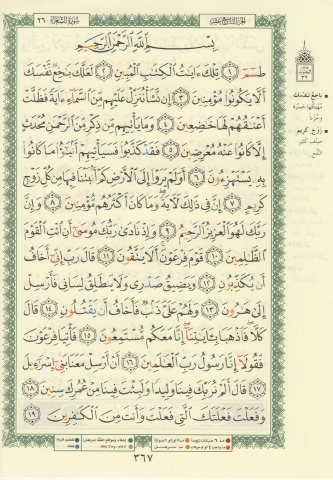 الجزء التاسع عشر
سورة الشعراء ٢٦
بِسْمِ ٱللَّهِ ٱلرَّحْمَٰنِ ٱلرَّحِيمِ
طسٓمٓ ١ تِلْكَ ءَايَٰتُ ٱلْكِتَٰبِ ٱلْمُبِينِ ٢ لَعَلَّكَ بَٰخِعٌ نَّفْسَكَ
أَلَّا يَكُونُوا۟ مُؤْمِنِينَ ٣ إِن نَّشَأْ نُنَزِّلْ عَلَيْهِم مِّنَ ٱلسَّمَآءِ ءَايَةً فَظَلَّتْ
أَعْنَٰقُهُمْ لَهَا خَٰضِعِينَ ٤ وَمَا يَأْتِيهِم مِّن ذِكْرٍ مِّنَ ٱلرَّحْمَٰنِ مُحْدَثٍ
إِلَّا كَانُوا۟ عَنْهُ مُعْرِضِينَ ٥ فَقَدْ كَذَّبُوا۟ فَسَيَأْتِيهِمْ أَنۢبَٰٓؤُا۟ مَا كَانُوا۟
بِهِۦ يَسْتَهْزِءُونَ ٦ أَوَلَمْ يَرَوْا۟ إِلَى ٱلْأَرْضِ كَمْ أَنۢبَتْنَا فِيهَا مِن كُلِّ زَوْجٍ
كَرِيمٍ ٧ إِنَّ فِى ذَٰلِكَ لَءَايَةً وَمَا كَانَ أَكْثَرُهُم مُّؤْمِنِينَ ٨ وَإِنَّ
رَبَّكَ لَهُوَ ٱلْعَزِيزُ ٱلرَّحِيمُ ٩ وَإِذْ نَادَىٰ رَبُّكَ مُوسَىٰٓ أَنِ ٱئْتِ ٱلْقَوْمَ
ٱلظَّٰلِمِينَ ١٠ قَوْمَ فِرْعَوْنَ أَلَا يَتَّقُونَ ١١ قَالَ رَبِّ إِنِّىٓ أَخَافُ
أَن يُكَذِّبُونِ ١٢ وَيَضِيقُ صَدْرِى وَلَا يَنطَلِقُ لِسَانِى فَأَرْسِلْ
إِلَىٰ هَٰرُونَ ١٣ وَلَهُمْ عَلَىَّ ذَنۢبٌ فَأَخَافُ أَن يَقْتُلُونِ ١٤ قَالَ
كَلَّا فَٱذْهَبَا بِـَٔايَٰتِنَآ إِنَّا مَعَكُم مُّسْتَمِعُونَ ١٥ فَأْتِيَا فِرْعَوْنَ
فَقُولَآ إِنَّا رَسُولُ رَبِّ ٱلْعَٰلَمِينَ ١٦ أَنْ أَرْسِلْ مَعَنَا بَنِىٓ إِسْرَٰٓءِيلَ
١٧ قَالَ أَلَمْ نُرَبِّكَ فِينَا وَلِيدًا وَلَبِثْتَ فِينَا مِنْ عُمُرِكَ سِنِينَ ١٨
وَفَعَلْتَ فَعْلَتَكَ ٱلَّتِى فَعَلْتَ وَأَنتَ مِنَ ٱلْكَٰفِرِينَ ١٩
٣٦٧
باخع نفسك
مهلكها حسرة
وحزنا
زوج كريم
صنف كثير
النفع